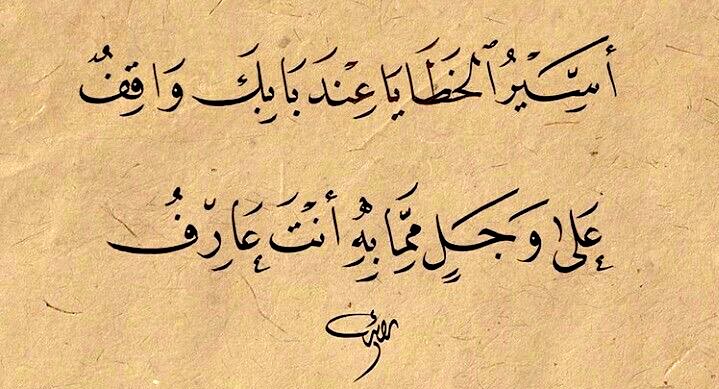 أَسِيرُ ٱلْخَطَايَا عِنْدَ بَابِكَ وَاقِفٌ
عَلَىٰ وَجَلٍ مِمَّا بِهِ أَنْتَ عَارِفُ